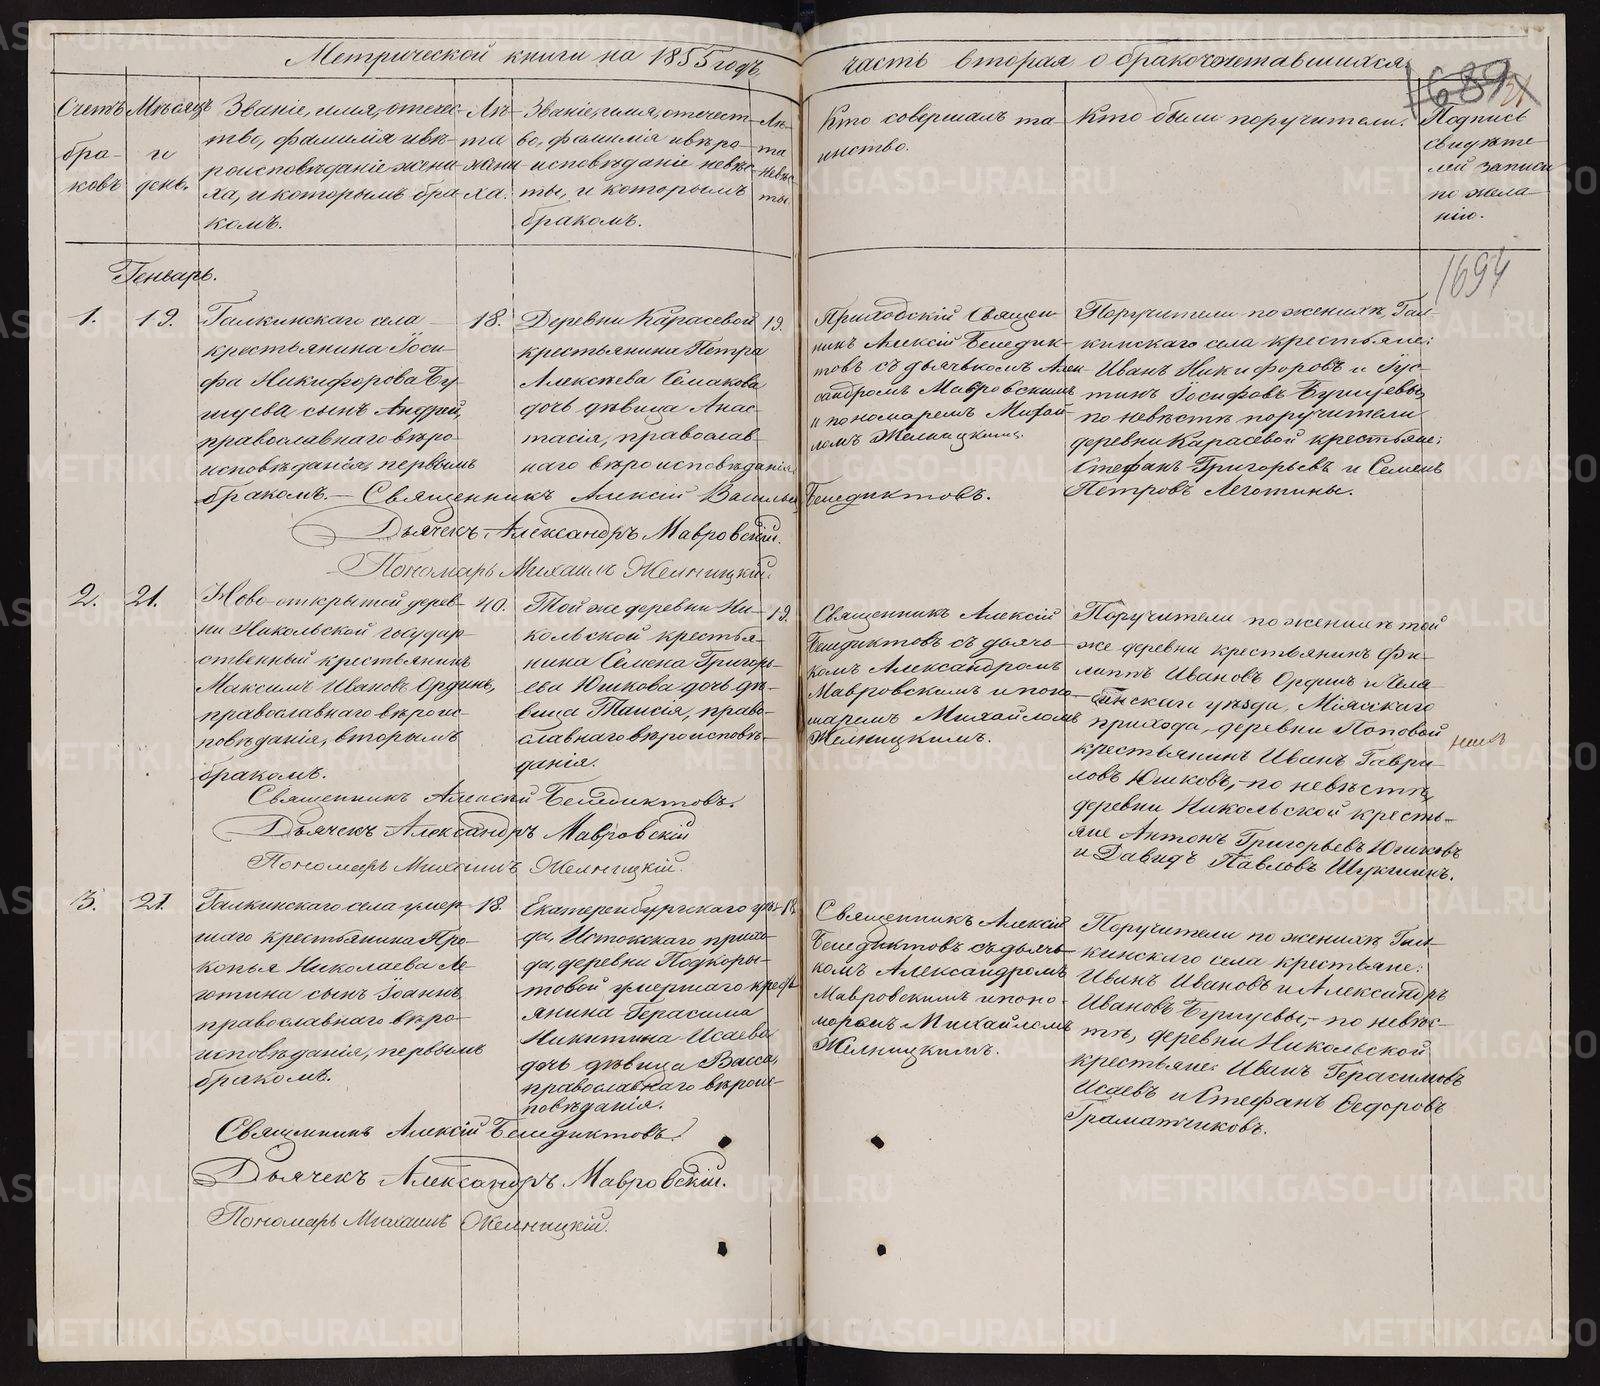 Метрической книги на 1855 годъ
часть вторая о бракосочетавшихся.
1689
Счетъ бра- ковъ
Мѣсяцъ и день.
Званіе, имя, отечес-
тво, фамилія и вѣ-
роисповѣданіе жени-
ха, и которымъ бра-
комъ.
Лѣ-
та
жени
ха.
Званіе, имя, отечест-
во, фамилія и вѣро-
исповѣданіе невѣс-
ты, и которымъ
бракомъ.
Лѣ-
та
невѣс
ты
Кто совершалъ та-
инство.
Кто были поручители.
Подпись
свидѣте
лей записи
по жела-
нію.
1694
Генварь.
1.
19.
Галкинскаго села
крестьянина Іоси-
фа Никифорова Бу-
шуева сынъ Андрей,
православнаго вѣро-
исповѣданія, первымъ
бракомъ.
18.
Деревни Карасевой
крестьянина Петра
Алексѣева Семакова
дочь дѣвица Анас-
тасія, православ-
наго вѣроисповѣданія
19.
Приходскій Священ-
никъ Алексій Бенедик-
товъ съ дьячькомъ Алек-
сандромъ Мавровскимъ
и пономаремъ Михай-
ломъ Желницкимъ.
Поручители по женихѣ Гал-
кинскаго села крестьяне:
Иванъ Никифоровъ и Іус-
тинъ Іосифовъ Бушуевы,
по невѣстѣ поручители
деревни Карасевой крестьяне:
Стефанъ Григорьевъ и Семенъ
Петровъ Леготины.
Священникъ Алексій Васильевъ Бенедиктовъ.
Дьячекъ Александръ Мавровскій.
Пономарь Михаилъ Желницкій.
2.
21.
Ново-открытой дерев-
ни Никольской государ-
ственный крестьянинъ
Максимъ Ивановъ Ординъ,
православнаго вѣроис-
повѣданія, вторымъ
бракомъ.
40.
Той же деревни Ни-
кольской крестья-
нина Семена Григорь-
ева Юшкова дочь дѣ-
вица Таисія, право-
славнаго вѣроисповѣ-
данія.
19.
Священникъ Алексій
Бенедиктовъ съ дьячь-
комъ Александромъ
Мавровскимъ и поно-
маремъ Михайломъ
Желницкимъ.
Поручители по женихѣ той
же деревни крестьянинъ Фи-
липпъ Ивановъ Ординъ и Челя-
бинскаго уѣзда, Міясскаго
прихода, деревни Поповой
крестьянинъ Иванъ Гаври-
ловъ Юшковъ, по невѣстѣ,
деревни Никольской кресть-
яне Антонъ Григорьевъ Юшковъ
и Давидъ Павловъ Шукшинъ.
Священникъ Алексій Бенедиктовъ.
Дьячекъ Александръ Мавровскій
Пономарь Михаилъ Желницкій.
3.
21.
Галкинскаго села умер-
шаго крестьянина Про-
копья Николаева Ле-
готина сынъ Іоаннъ,
православнаго вѣро-
исповѣданія, первымъ
бракомъ.
18.
Екатеренбургскаго уѣз-
да, Истокскаго прихо-
да, деревни Подкоры-
товой умершаго кресть-
янина Герасима
Никитина Исаева
дочь дѣвица Васса,
православнаго вѣроис-
повѣданія.
18.
Священникъ Алексій
Бенедиктовъ съ дьячь-
комъ Александромъ
Мавровскимъ и поно-
маремъ Михайломъ
Желницкимъ.
Поручители по женихѣ Гал-
кинскаго села крестьяне:
Иванъ Ивановъ и Александръ
Ивановъ Бушуевы, по невѣс-
тѣ, деревни Никольской
крестьяне: Иванъ Герасимовъ
Исаевъ и Стефанъ Ѳедоровъ
Граматчиковъ.
Священникъ Алексій Бенедиктовъ.
Дьячекъ Александръ Мавровскій.
Пономарь Михаилъ Желницкій.
METRIKI.GASO-URAL.RU